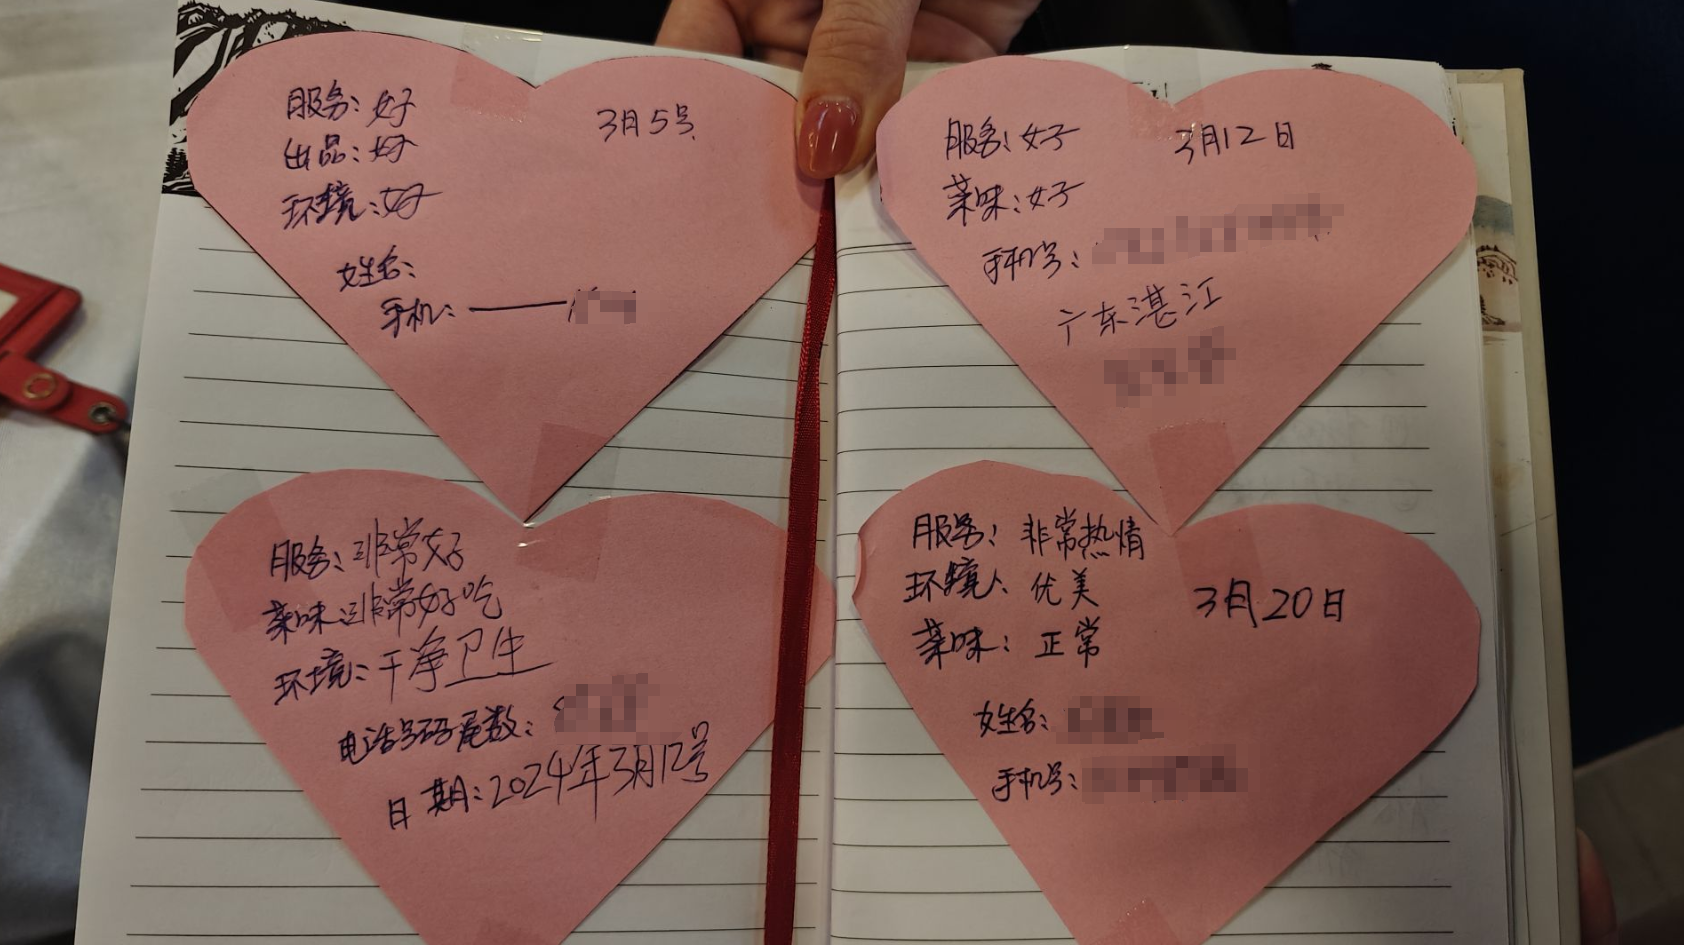 服务：好
3月5号
出品：好
环境：好
姓名：
手机：
服务：非常好
菜味：非常好吃
环境：干净卫生
电话号码尾数：
日期：2024年3月12号
服务：好
3月12日
菜味：好
手机号：
广东湛江
服务：非常热情
环境：优美
3月20日
菜味：正常
姓名：
手机号：